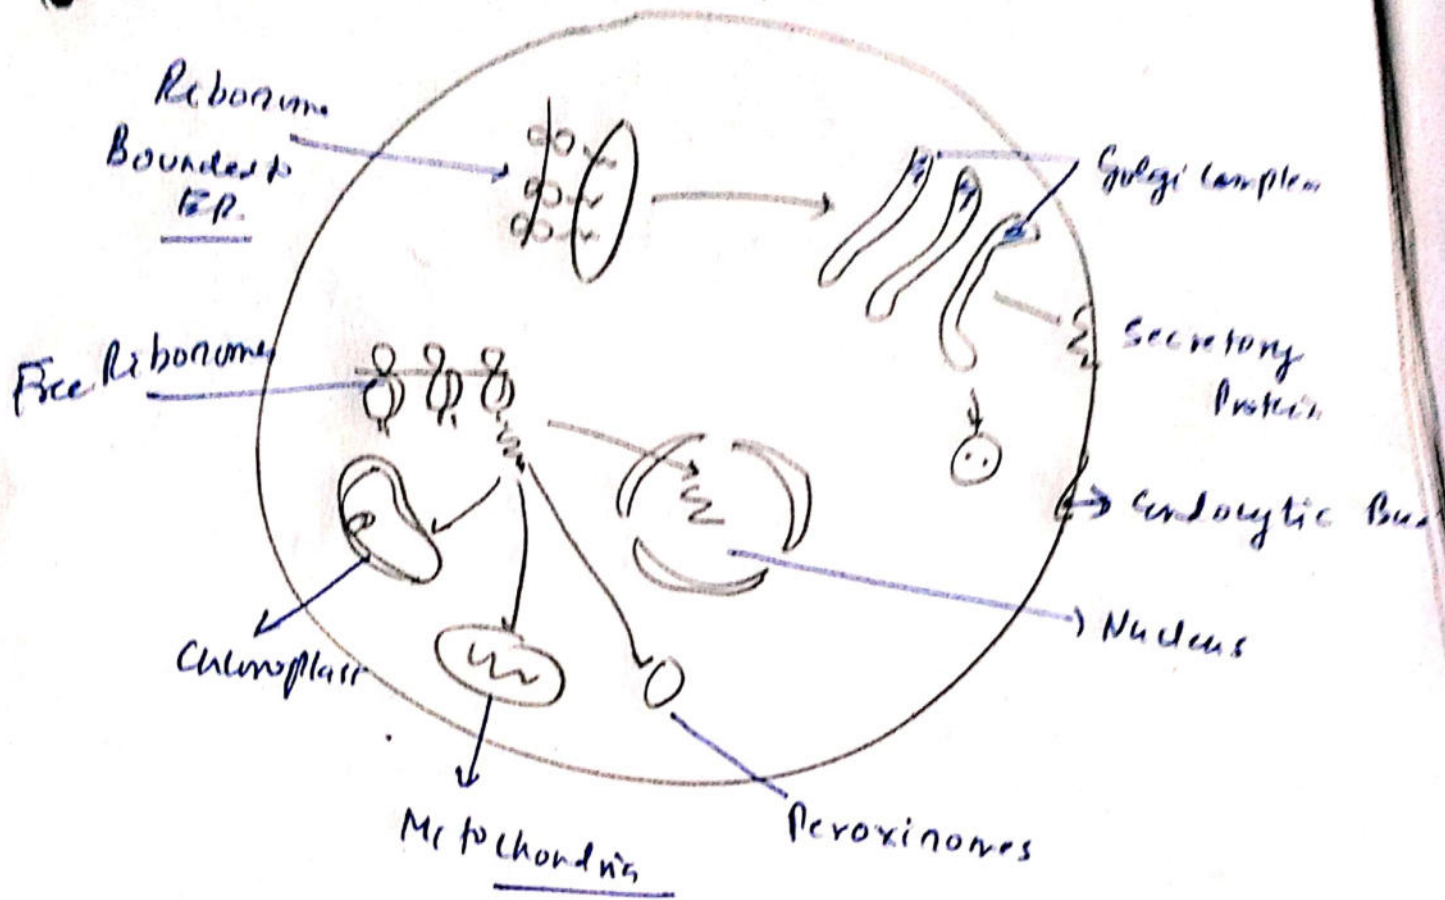 Ribosome
Bounded to
ER.
Golgi Complex
Secretory
Protein
Free Ribosomes
Endocytic
Nucleus
Chloroplast
Mitochondria
Peroxinomes